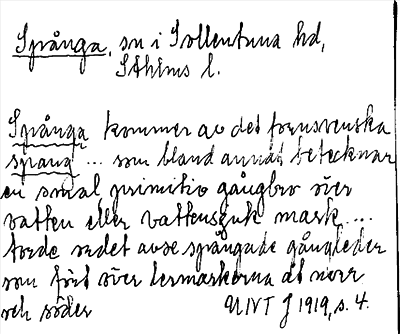 Spånga, sn i Sollentuna hd,
Sthlms l.
Spånga kommer av det fornsvenska
spang ... som bland annat betecknar
en smal primitiv gångbro över
vatten eller vattensjuk mark....
torde ordet avse spångade gångleder
som fört över lermarkerna åt norr
och söder UNT J 1919, s. 4.